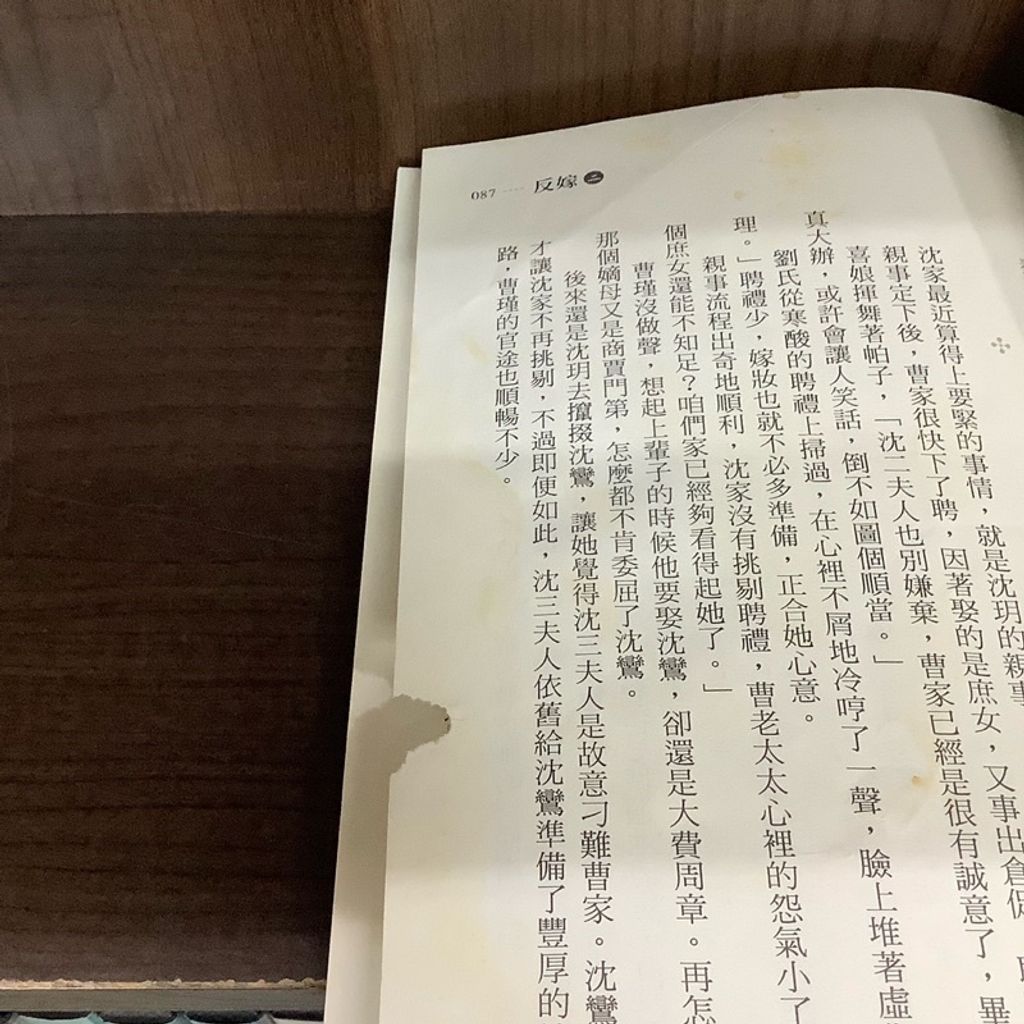 087 反嫁 二
沈家最近算得上要緊的事情,就是沈玥的親事
親事定下後,曹家很快下了聘,因著娶的是庶女,又事出倉促
喜娘揮舞著帕子,「沈二夫人也別嫌棄,曹家已經是很有誠意了,畢
真大辦,或許會讓人笑話,倒不如圖個順當。」
劉氏從寒酸的聘禮上掃過,在心裡不屑地冷哼了一聲,臉上堆著虛
理。」聘禮少,嫁妝也就不必多準備,正合她心意。
親事流程出奇地順利,沈家沒有挑剔聘禮,曹老太太心裡的怨氣小了
個庶女還能不知足?咱們家已經夠看得起她了。」
曹瑾沒做聲,想起上輩子的時候他要娶沈鸞,卻還是大費周章。再怎
那個嫡母又是商賈門第,怎麼都不肯委屈了沈鸞。
後來還是沈玥去攛掇沈鸞,讓她覺得沈三夫人是故意刁難曹家。沈鸞
才讓沈家不再挑剔,不過即便如此,沈三夫人依舊給沈鸞準備了豐厚的
路,曹瑾的官途也順暢不少。